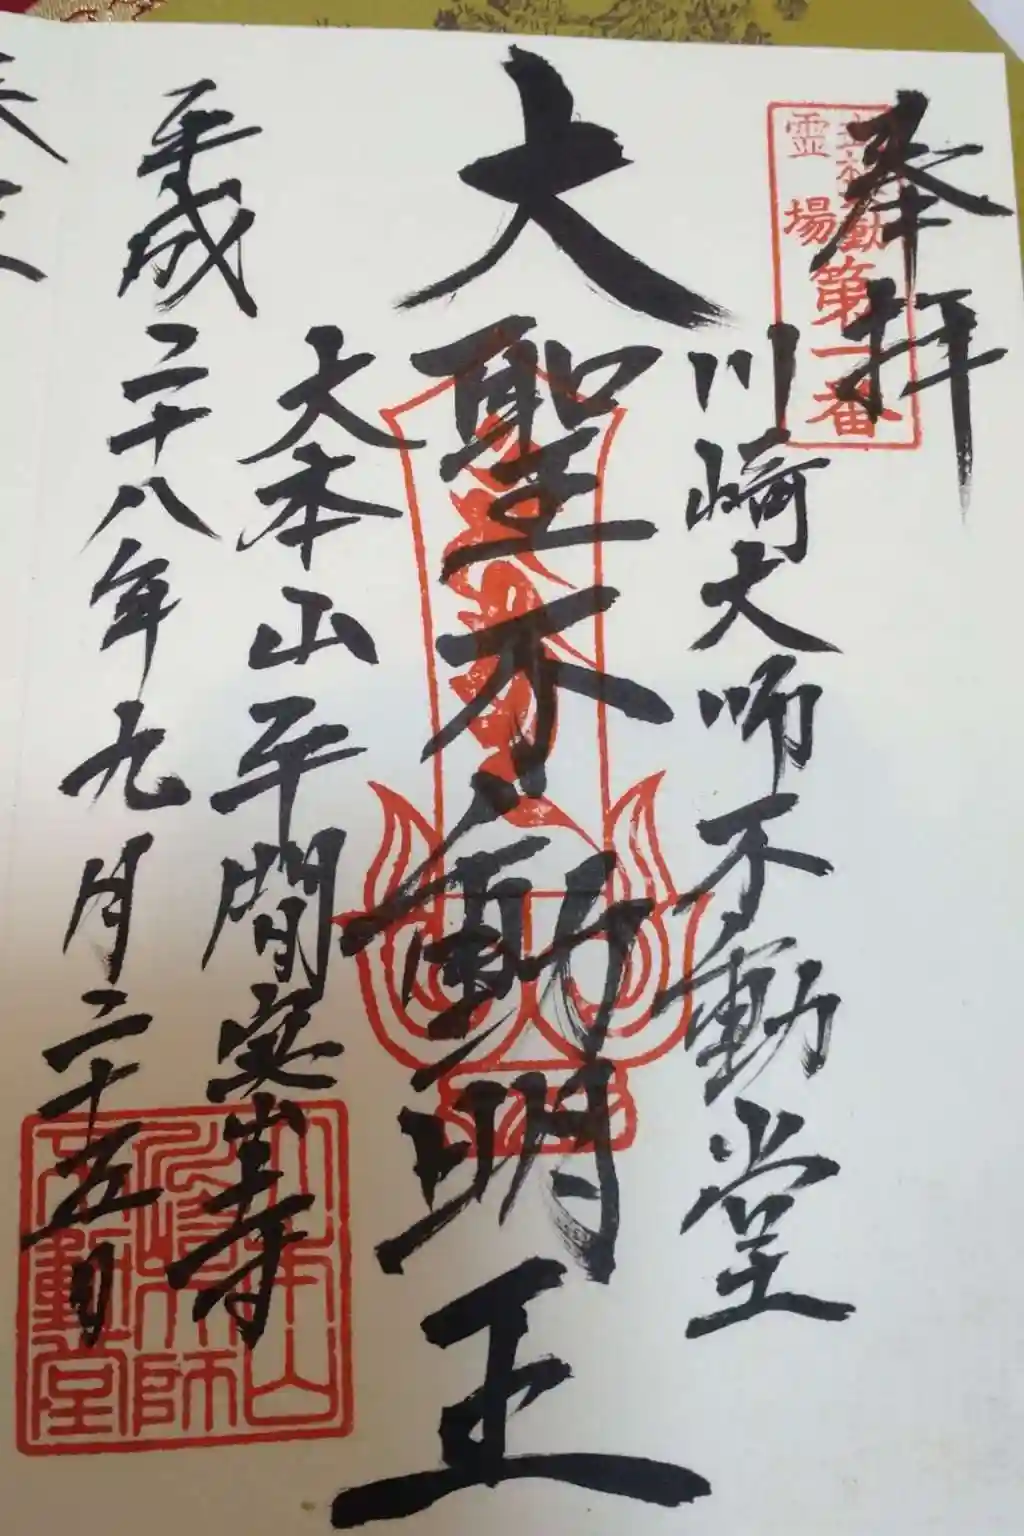 奉拝
霊場
第一番
川崎大師不動堂
大聖不動明王
大本山平間寺
平成二十八年九月二十五日
大本山
川崎大師
不動堂